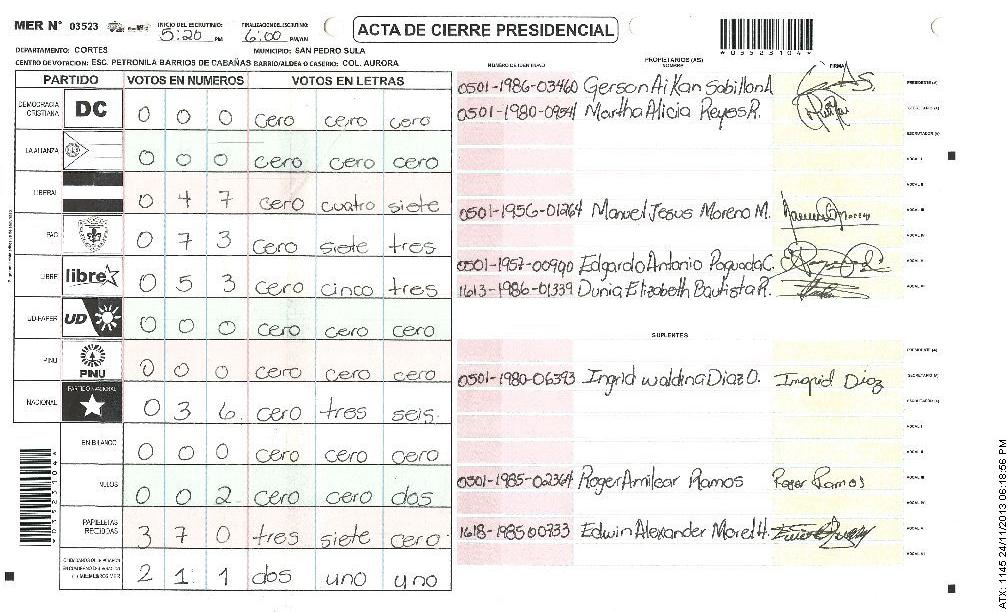 MER N° 03523 INICIO DEL ESCRUTINIO: 5:20 PM FINALIZACION DEL ESCRUTINIO: 6:00 PM/AM
ACTA DE CIERRE PRESIDENCIAL
*03523104*
DEPARTAMENTO: CORTES MUNICIPIO: SAN PEDRO SULA
CENTRO DE VOTACION: ESC. PETRONILA BARRIOS DE CABAÑAS BARRIO/ALDEA O CASERIO: COL. AURORA
PARTIDO VOTOS EN NUMEROS VOTOS EN LETRAS
DEMOCRACIA CRISTIANA DC 0 0 0 cero cero cero
LA ALIANZA 0 0 0 cero cero cero
LIBERAL 0 4 7 cero cuatro siete
PAC 0 7 3 cero siete tres
LIBRE libre 0 5 3 cero cinco tres
UD-FAPER UD 0 0 0 cero cero cero
PINU PINU 0 0 0 cero cero cero
NACIONAL PARTIDO NACIONAL 0 3 6 cero tres seis
EN BLANCO 0 0 0 cero cero cero
NULOS 0 0 2 cero cero dos
PAPELETAS RECIBIDAS 3 7 0 tres siete cero
2 1 1 dos uno uno
NUMERO DE IDENTIDAD PROPIETARIOS (AS) FIRMA
0501-1986-03460 Gerson Aikan Sabillon A PRESIDENTE (A)
0501-1980-0954 Martha Alicia Reyes R. SECRETARIO (A)
ESCRUTADOR (A)
VOCAL I
VOCAL II
0501-1956-01264 Manuel Jesus Moreno M. VOCAL III
VOCAL IV
0501-1957-00990 Edgardo Antonio Paguada C. VOCAL V
1613-1986-01339 Dunia Elizabeth Bautista R. VOCAL VI
SUPLENTES
PRESIDENTE (A)
0501-1980-06393 Ingrid Waldina Diaz O. Ingrid Diaz SECRETARIO (A)
ESCRUTADOR (A)
VOCAL I
VOCAL II
0501-1985-02364 Roger Amilcar Ramos Roger Ramos VOCAL III
VOCAL IV
1618-1985 00733 Edwin Alexander Morel H. VOCAL V
VOCAL VI
*03523104*
ATX: 1145 24/11/2013 06:18:56 PM